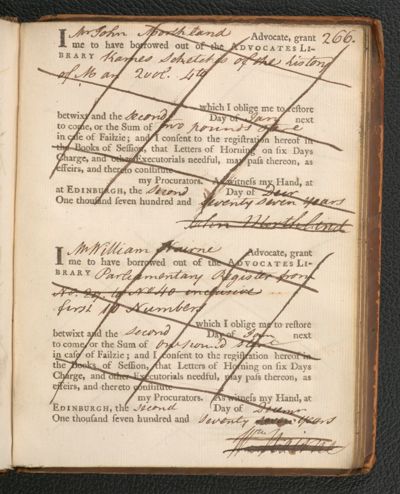 266.
I Mr John Morthland Advocate, grant
me to have borrowed out of the ADVOCATES LI-
BRARY Kames Sketches of the History
of Man 2 vol. 4to
which I oblige me to reſtore
betwixt and the Second Day of Jany next
to come, or the Sum of two pounds
in caſe of Failzie; and I conſent to the regiſtration hereof in
the Books of Seſſion, that Letters of Horning on ſix Days
Charge, and other Executorials needful, may paſs thereon, as
effeirs, and thereto conſtitute
my Procurators. As witneſs my Hand, at
at EDINBURGH, the Second Day of Decr
One thouſand ſeven hundred and Seventy Seven years
John Morthland
I Mr William Advocate, grant
me to have borrowed out of the ADVOCATES LI-
BRARY Parliamentary Register from
No. to No 40 incluseive
first 10 Numbers
which I oblige me to reſtore
betwixt and the Second Day of next
to come, or the Sum of one pound
in caſe of Failzie; and I conſent to the regiſtration hereof in
the Books of Seſſion, that Letters of Horning on ſix Days
Charge, and other Executorials needful, may paſs thereon, as
effeirs, and thereto conſtitute
my Procurators. As witneſs my Hand, at
EDINBURGH, the Second Day of
One thouſand ſeven hundred and Seventy Seven years
Wm